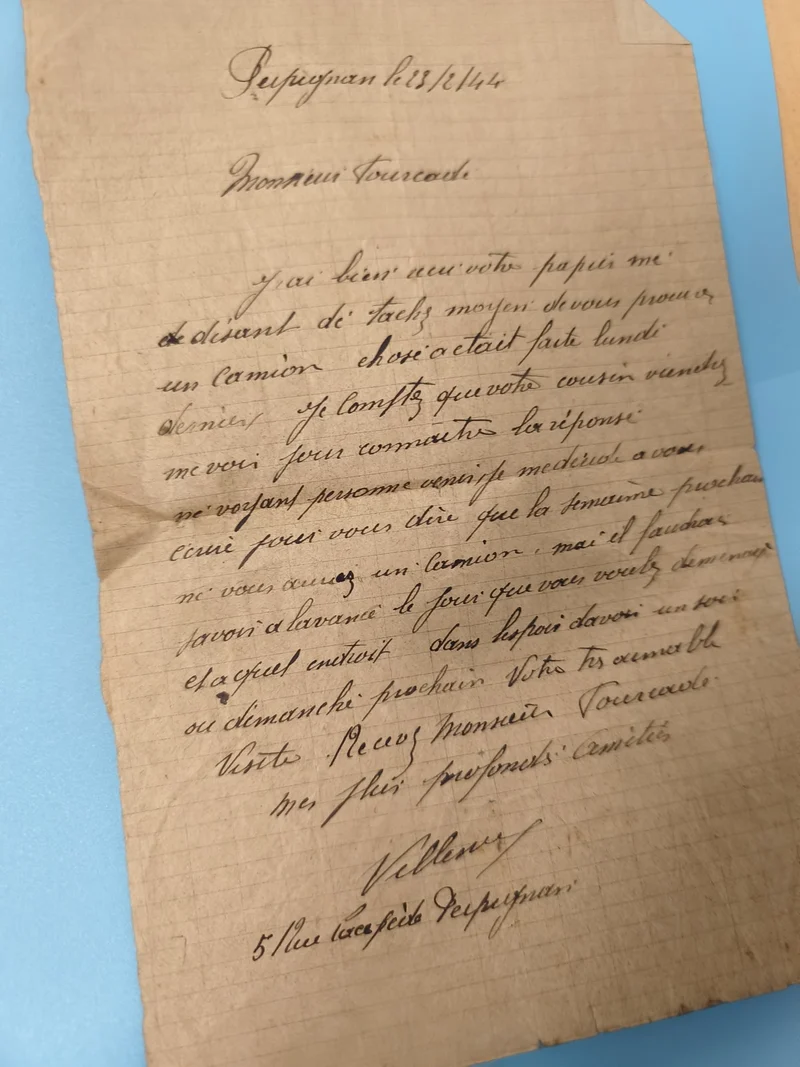 Perpignan le 23/2/44
Monsieur Fourcade
J'ai bien recu votre papier me
disant de tachez moyen de vous procurez
un camion chose actait faite lundi
dernier Je Comptez que votre cousin viendrez
me voir pour connaitre la réponse
ne voyant personne venir, je me décide a vous
écrire pour vous dire que la semaine prochain
ne vous aurez un Camion, mai il faudraz
savoir a lavance le jour que vous voulez demenagé
et a quel endroit dans lespoir davoir un soir
ou dimanche prochain Votre trs aimable
Visite Recevez Monsieur Fourcade
mes plus profonds amitiés
5 Rue Lacepède Perpignan